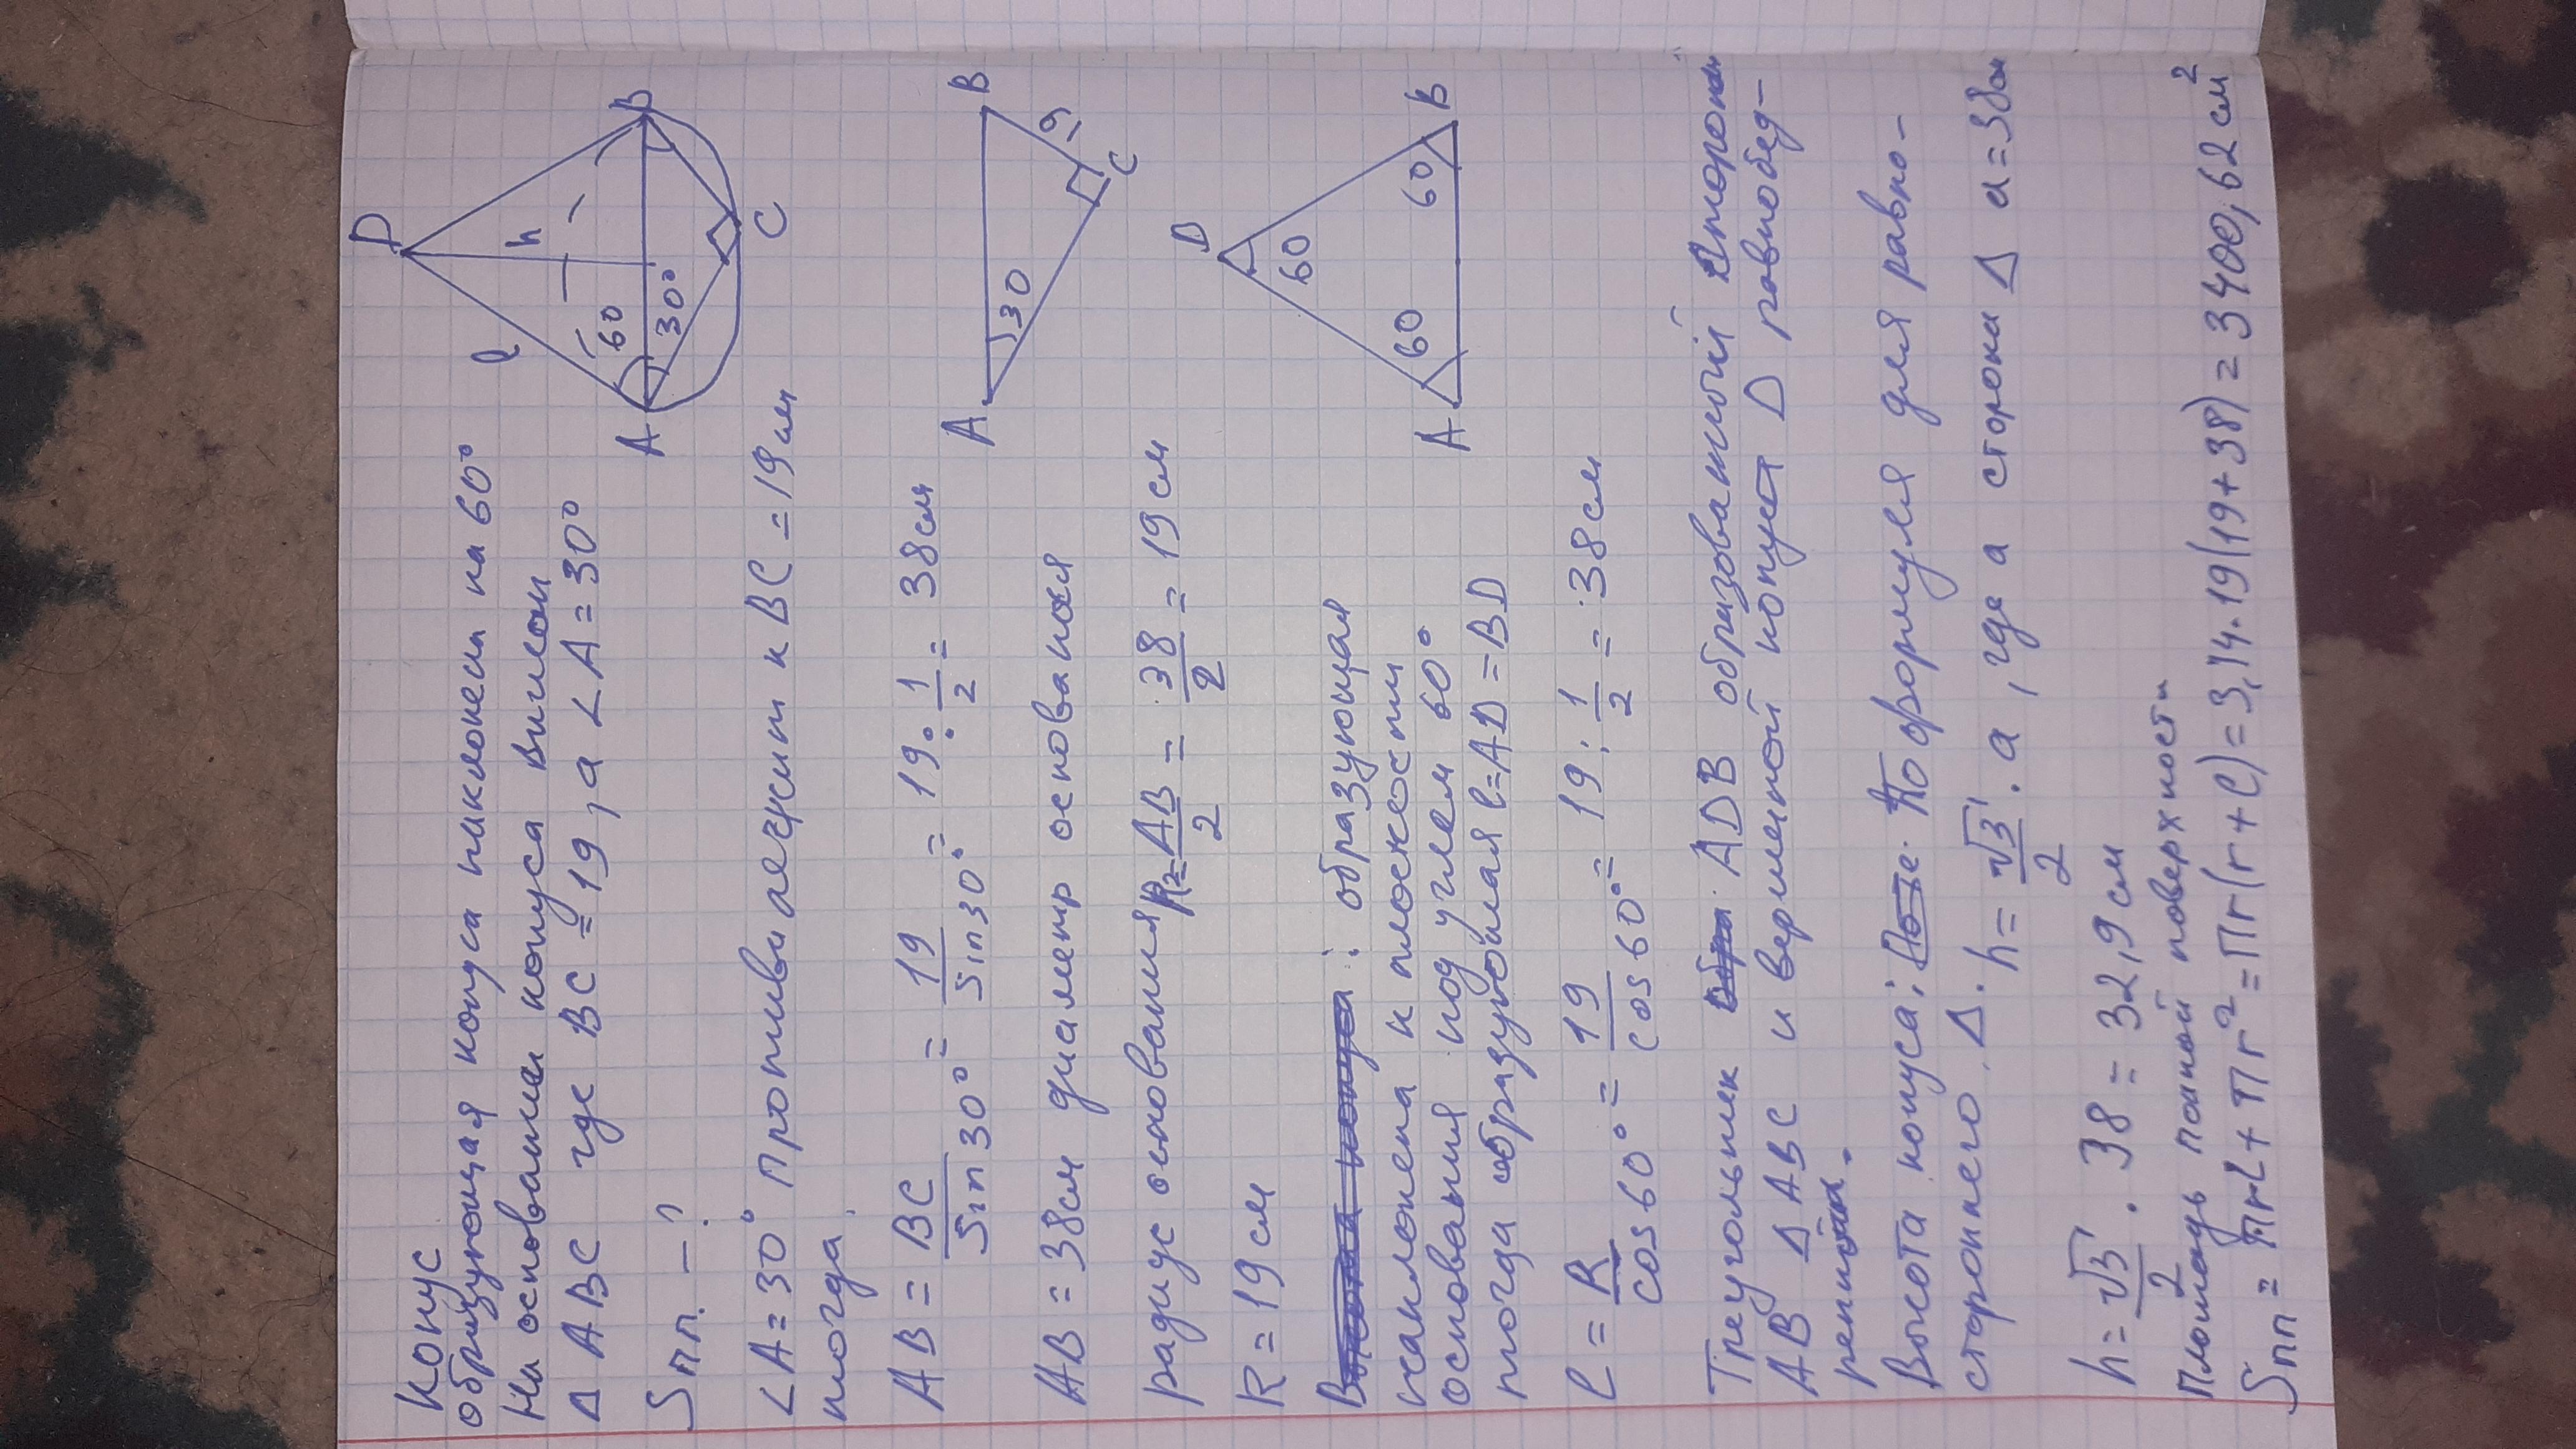 Конус
образующая конуса наклонена на 60°
На основании конуса вписан
Δ ABC где BC = 19, а ∠A = 30°
Sпп. – ?
∠A = 30° противолежит к BC = 19 см
тогда
AB = BC/Sin30° = 19/Sin30° = 19 : 1/2 = 38 см
AB = 38 см диаметр основания
радиус основания R = AB/2 = 38/2 = 19 см
R = 19 см
образующая
наклонена к плоскости
основания под углем 60°
тогда образующая l = AD = BD
l = R/cos60° = 19/cos60° = 19 : 1/2 = 38 см
Треугольник ADB образованный стороной
AB Δ ABC и вершиной конуса Δ равнобед-
Высота конуса; По формуля для равно-
стороннего Δ. h = √3/2 · a, где a сторона Δ a = 38 см
h = √3/2 · 38 = 32,9 см
Площадь полной поверхности
Sпп = πrL + πr² = πr(r + l) = 3,14 · 19(19 + 38) = 3400,62 см²
D
l
h
60
30°
A
B
C
A
B
30
19
C
D
60
60
60
A
B